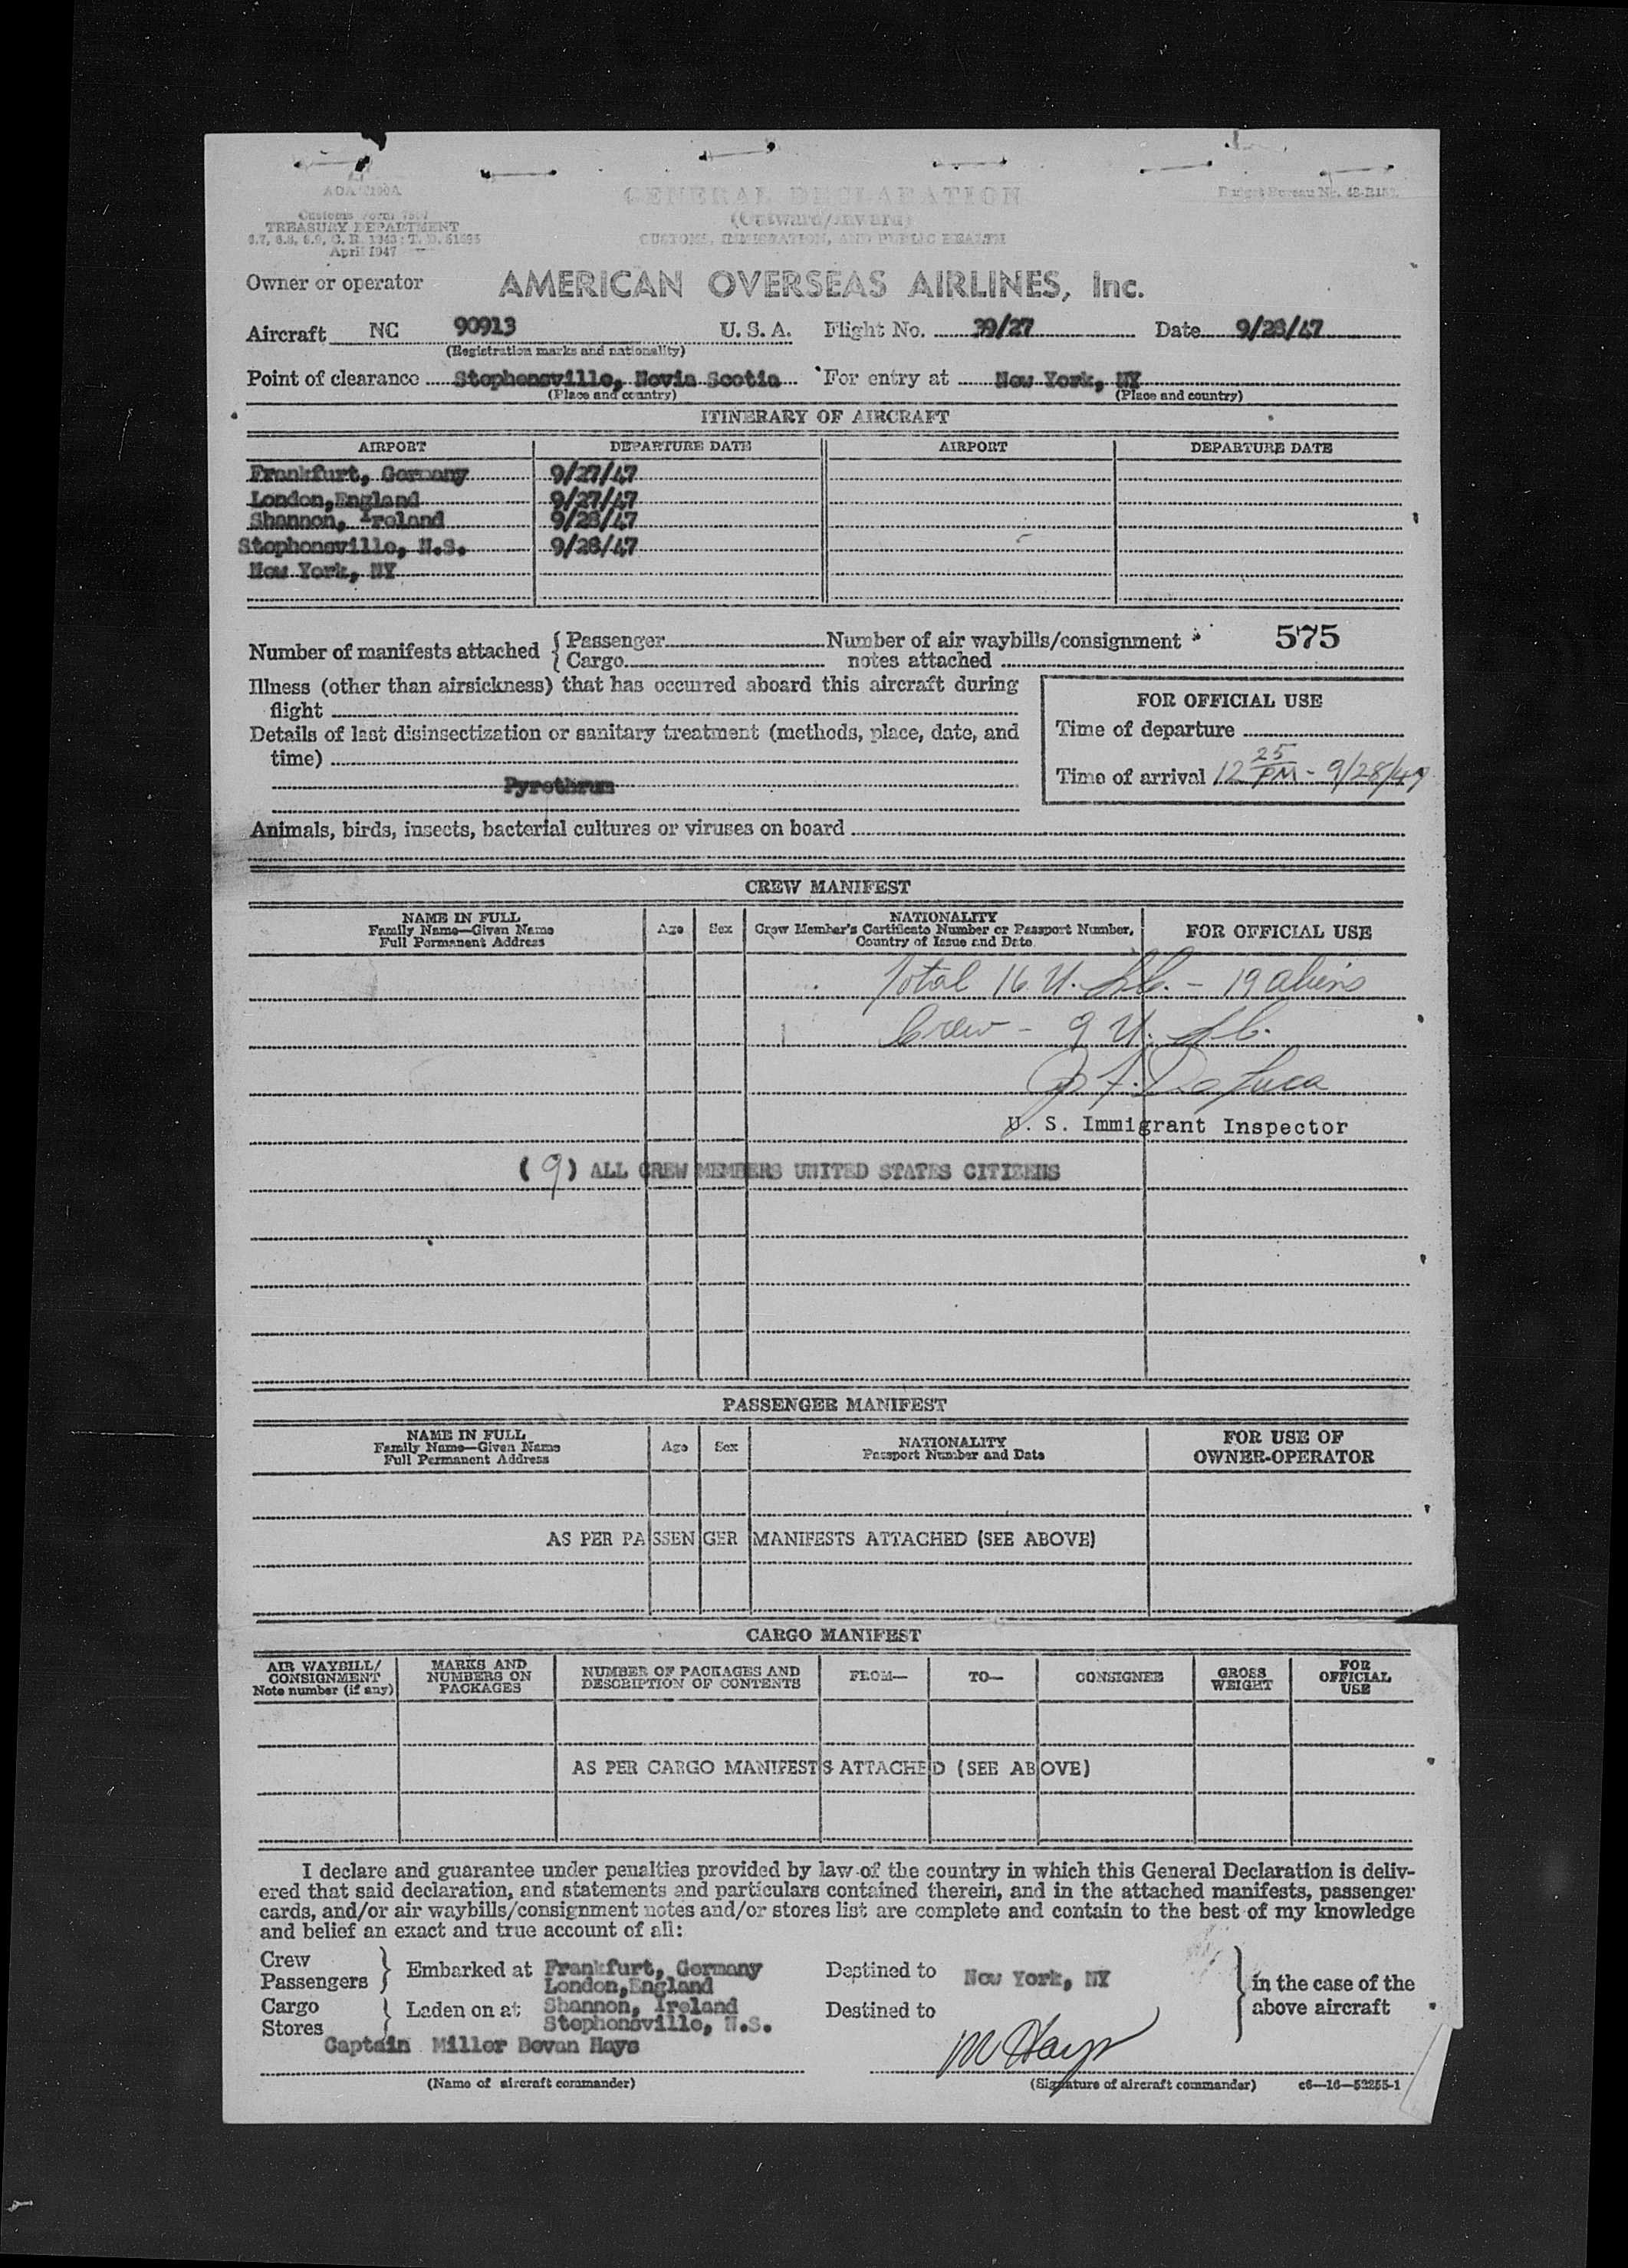 AOA
Customs Form 7507
TREASURY DEPARTMENT
April 1947
GENERAL DECLARATION
(Outward/Inward)
CUSTOMS, IMMIGRATION, AND PUBLIC HEALTH
Budget Bureau No.
Owner or operator AMERICAN OVERSEAS AIRLINES, Inc.
Aircraft NC 90913 U. S. A. Flight No. 39/27 Date 9/28/47
(Registration marks and nationality)
Point of clearance Stephensville, Novia Scotia For entry at New York, NY
(Place and country) (Place and country)
ITINERARY OF AIRCRAFT
AIRPORT DEPARTURE DATE AIRPORT DEPARTURE DATE
Frankfurt, Germany 9/27/47
London,England 9/27/47
Shannon, Ireland 9/28/47
Stephensville, N.S. 9/28/47
New York, NY
Number of manifests attached { Passenger Number of air waybills/consignment 575
Cargo notes attached
Illness (other than airsickness) that has occurred aboard this aircraft during
flight
FOR OFFICIAL USE
Details of last disinsectization or sanitary treatment (methods, place, date, and
time)
Time of departure
Time of arrival 12 25 PM - 9/28/47
Pyrethrum
Animals, birds, insects, bacterial cultures or viruses on board
CREW MANIFEST
NAME IN FULL
Family Name—Given Name
Full Permanent Address
Age Sex
NATIONALITY
Crew Member's Certificate Number or Passport Number,
Country of Issue and Date
FOR OFFICIAL USE
Total 16 U. S.C. - 19 aliens
Crew - 9 U. S.C.
F. De Luca
U. S. Immigrant Inspector
(9) ALL CREW MEMBERS UNITED STATES CITIZENS
PASSENGER MANIFEST
NAME IN FULL
Family Name—Given Name
Full Permanent Address
Age Sex
NATIONALITY
Passport Number and Date
FOR USE OF
OWNER-OPERATOR
AS PER PASSENGER MANIFESTS ATTACHED (SEE ABOVE)
CARGO MANIFEST
AIR WAYBILL/
CONSIGNMENT
Note number (if any)
MARKS AND
NUMBERS ON
PACKAGES
NUMBER OF PACKAGES AND
DESCRIPTION OF CONTENTS
FROM— TO— CONSIGNEE
GROSS
WEIGHT
FOR
OFFICIAL
USE
AS PER CARGO MANIFESTS ATTACHED (SEE ABOVE)
I declare and guarantee under penalties provided by law of the country in which this General Declaration is deliv-
ered that said declaration, and statements and particulars contained therein, and in the attached manifests, passenger
cards, and/or air waybills/consignment notes and/or stores list are complete and contain to the best of my knowledge
and belief an exact and true account of all:
Crew
Passengers } Embarked at Frankfurt, Germany Destined to New York, NY } in the case of the
London,England
Cargo
Stores } Laden on at Shannon, Ireland Destined to above aircraft
Stephensville, N.S.
Captain Miller Bevan Hays M Hays
(Name of aircraft commander) (Signature of aircraft commander) c6—16—52255-1